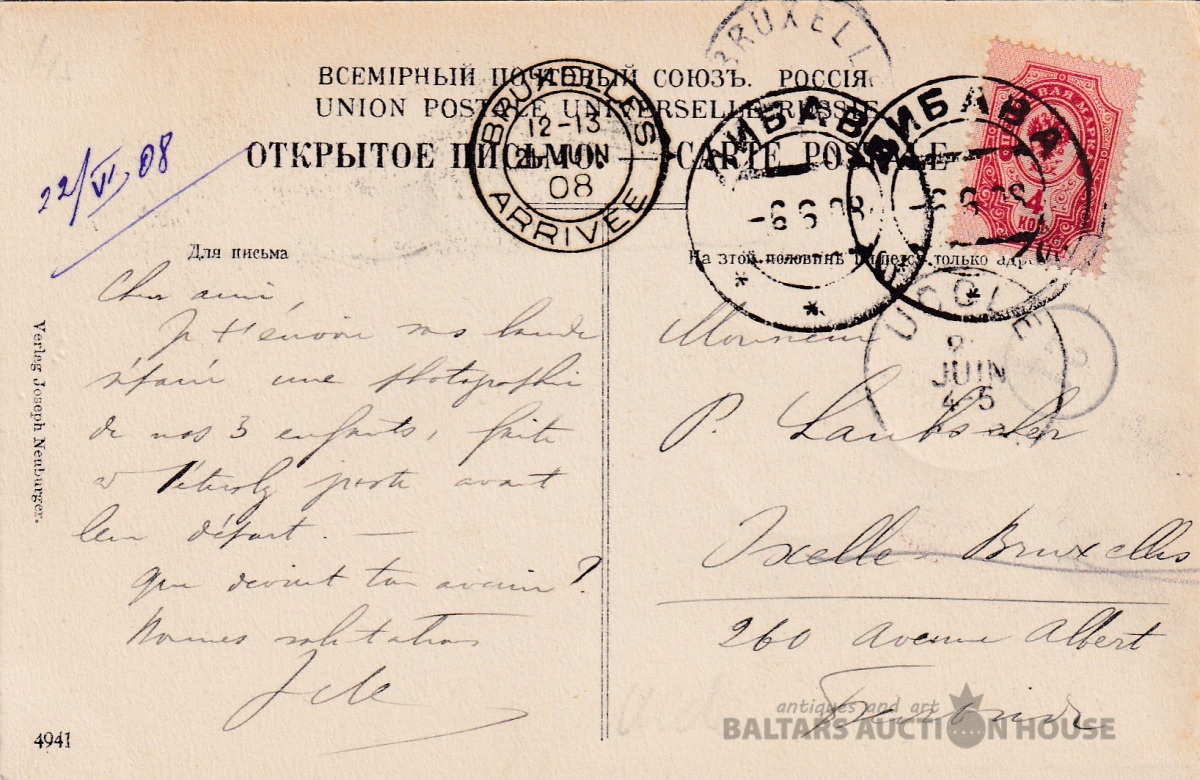 BRUXELL
ВСЕМІРНЫЙ ПОЧТОВЫЙ СОЮЗЪ. РОССІЯ
UNION POSTALE UNIVERSELLE RUSSIE
ОТКРЫТОЕ ПИСЬМО. — CARTE POSTALE
BRUXELLES
12-13
JUIN
08
ARRIVÉE
ЛИБАВА
-6 6 08
ЛИБАВА
-6 6 08
МАРКА
4
КОП
22/VI 08
Для письма
На этой половинѣ пишется только
UCCLE
2
JUIN
4-5
Cher ami,
Je t'envoie sous bande
séparé une photographie
de nos 3 enfants, faite
juste avant
leur départ. —
Que devient ton
salutations
Monsieur
P.
Ixelles Bruxelles
260 Avenue Albert
Verlag Joseph Neuburger.
4941
antiques and art
BALTARS AUCTION HOUSE